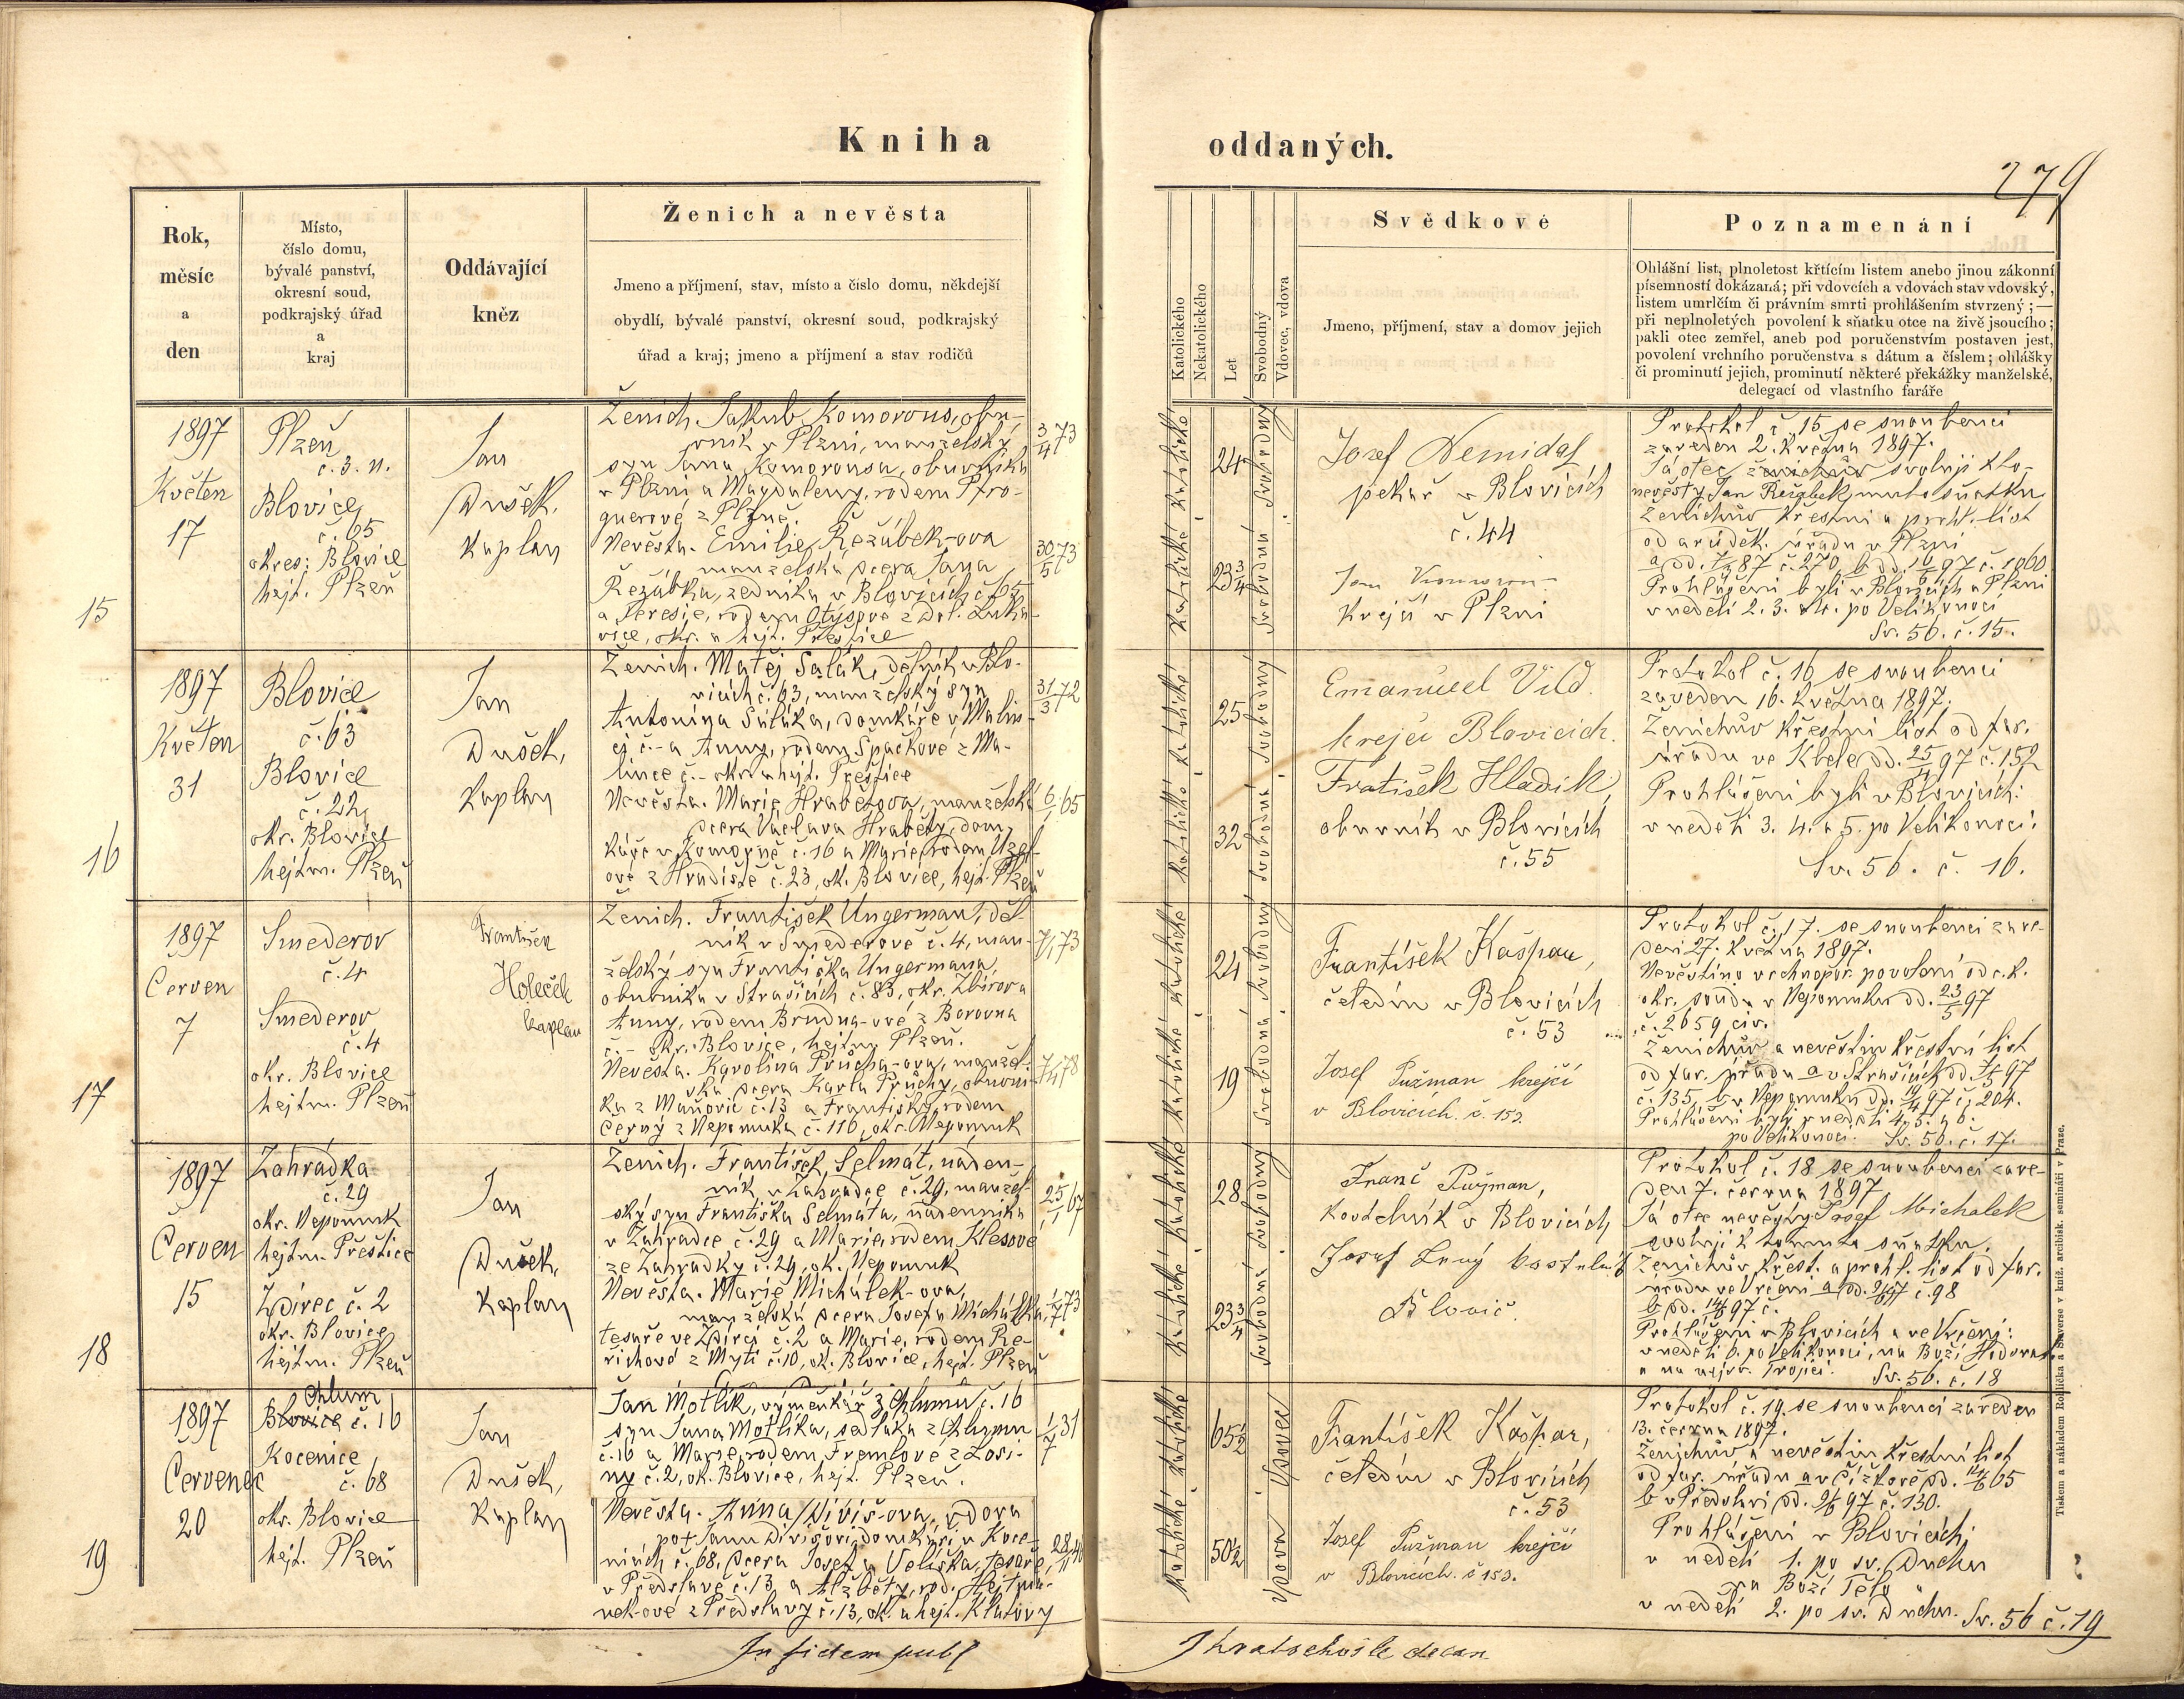 Kniha
oddaných.
279
Rok,
měsíc
a
den
Místo,
číslo domu,
bývalé panství,
okresní soud,
podkrajský úřad
a
kraj
Oddávající
kněz
Ženich a nevěsta
Jmeno a příjmení, stav, místo a čislo domu, někdejší
obydlí, bývalé panství, okresní soud, podkrajský
úřad a kraj; jmeno a příjmení a stav rodičů
Katolického
Nekatolického
Let
Svobodný
Vdovec, vdova
Svědkové
Jmeno, příjmení, stav a domov jejich
Poznamenání
Ohlášní list, plnoletost křtícím listem anebo jinou zákonní
písemností dokázaná; při vdovcích a vdovách stav vdovský,
listem umrlčím či právním smrti prohlášením stvrzený; —
při neplnoletých povolení k sňatku otce na živě jsoucího;
pakli otec zemřel, aneb pod poručenstvím postaven jest,
povolení vrchního poručenstva s dátum a číslem; ohlášky
či prominutí jejich, prominutí některé překážky manželské,
delegací od vlastního faráře
15
1897
Květen
17
Plzeň
č. 3. n.
Blovice
č. 65
okres: Blovice
hejt. Plzeň
Jan
Dušek,
Kaplan
Ženich Jakub Komorous, obu-
vník v Plzni, manželský
syn Jana Komorousa, obuvníka
v Plzni a Magdaleny, rodem
z Plzně.
Nevěsta. Emilie Řežábek-ova
manželská dcera Jana
Řežábka, zedníka v Blovicích č. 65
a Teresie, rodem z Dol. Luka-
vice, okr. a hejt. Přeštice
3/4 73
30/5 73
Katolické
Katolické
24
23 3/4
Svobodný
Svobodná
Josef Nemidal
pekař v Blovicích
č. 44
Jan
Krejčí v Plzni
Protokol č. 15 se snoubenci
zaveden 2. Května 1897.
Já otec ženichův svoluji kto-
nevěsty Jan Řežabek muto sňatku.
Ženichův Křestní a prohl. list
od arciděk. úřadu v Plzni
č. 270
Prohlášeni byli v Blovicích a Plzni
v neděli 2. 3. 4. po Velikonoci
Sv. 56. č. 15.
16
1897
Květen
31
Blovice
č. 63
Blovice
č. 22
okr. Blovice
hejtm. Plzeň
Jan
Dušek,
Kaplan
Ženich. Matěj Salák, dělník v Blo-
vicích č. 63, manželský syn
Antonína Saláka, domkáře v Malin-
ci č. - a Anny, rodem Špačkové z Ma-
lince č. - okr. a hejt. Přeštice
Nevěsta. Marie Hrabětova, manželská
dcera Václava Hraběty, dom-
káře v Komorně č. 16 a Marie, rodem
ové z Hradiště č. 23, ok. Blovice, hejt. Plzeň
31/3 72
6/1 65
Katolické
Katolické
25
32
Svobodný
Svobodná
Emanuel Vild.
krejčí Blovicích.
Fratišek Hladik,
obuvník v Blovicích
č. 55
Protokol č. 16 se snoubenci
zaveden 16. Května 1897.
Ženichův Křestní list od far.
úřadu ve Kbele dd. 25/4 97 č. 152
Prohlášeni byli v Blovicích:
v neděli 3. 4. a 5. po Velikonoci.
Sv. 56. č. 16.
17
1897
Červen
7
Smederov
č. 4
Smederov
č. 4
okr. Blovice
hejtm. Plzeň
František
Holeček
kaplan
Ženich. František Ungerman, děl-
ník v Smederově č. 4, man-
želský syn Františka Ungermana,
obubníka v Strašicích č. 83, okr. Zbirov a
Anny, rodem Brudna-ové z Borovna
č. - okr. Blovice, hejtm. Plzeň.
Nevěsta. Karolina Průcha-ova, manžel-
ská dcera Karla Průchy, obuvní-
ka z Maňovic č. 13 a Františky, rodem
Černý z Nepomuka č. 116, okr. Nepomuk
7/1 73
7/4 78
Katolické
Katolické
24
19
Svobodný
Svobodná
František Kašpar,
čeledín v Blovicích
č. 53
Josef Pužman krejčí
v Blovicích. č 153.
Protokol č. 17. se snoubenci zave-
den 27. Května 1897.
Nevěstino vrchnopor. povolení od c. k.
okr. soudu v Nepomuku dd. 23/5 97
č. 2659 civ.
Ženichův a nevěstin křestní list
od far. úřadu a v Strašicích dd. 97
č. 135, b v Nepomuku dd. 97 č. 204.
Prohlášeni byli v neděli 4. 5. a 6.
po Velikonoci. Sv. 56. č. 17.
18
1897
Červen
15
Zahradka
č. 29
okr. Nepomuk
hejtm. Přeštice
Ždírec č. 2
okr. Blovice
hejtm. Plzeň
Jan
Dušek,
Kaplan
Ženich. František Selmát, náden-
ník v Zahradce č. 29, manžel-
ský syn Františka Selmáta, nádenníka
v Zahradce č. 29 a Marie, rodem Klesové
ze Zahradky č. 29, ok. Nepomuk
Nevěsta. Marie Michálek-ova,
manželská dcera Josefa Michálka,
tesaře ve Ždírci č. 2 a Marie, rodem Ře-
řichové z Mýti č. 10, ok. Blovice, hejt. Plzeň
25/1 67
Katolické
Katolické
28
23 3/4
Svobodný
Svobodná
Franč Pužman,
Kostelník v Blovicích
Josef kostelník
Blovic.
Protokol č. 18 se snoubenci zave-
den 7. června 1897
Já otec nevěsty Josef Michalek
svoluji k tomuto sňatku.
Ženichův křest. a prohl. list od far.
úřadu ve Vrčeni a dd. 97 č. 98
b dd. 14/6 97 č.
Prohlášeni v Blovicích a ve Vrčeni:
v neděli 6. po Velikonoci, na Boží Hod
a na nejsv. Trojici. Sv. 56. č. 18
19
1897
Červenec
20
Chlum
Blovice č. 16
Kocenice
č. 68
okr. Blovice
hejt. Plzeň
Jan
Dušek,
Kaplan
Jan Motlík, výmenkář z Chlumu č. 16
syn Jana Motlíka, sedláka z Chlumu
č. 16 a Marie, rodem Fremlové z Losi-
ny č. 2, ok. Blovice, hejt. Plzeň.
Nevěsta. Anna Diviš-ova, vdova
po † Janu Divišovi, domkáři v Koce-
nicích č. 68, dcera Josefa Velíška, tesaře
v Předslavě č. 13 a Alžběty, rod. Hejtmá-
nek-ové z Předslavy č. 13, ok. a hejt. Klatovy
1/7 31
Katolické
Katolické
65 1/2
50 1/2
Vdovec
Vdova
František Kašpar,
čeledín v Blovicích
č. 53
Josef Pužman krejčí
v Blovicích. č 153.
Protokol č. 19. se snoubenci zaveden
13. června 1897.
Ženichův a nevěstin Křestní list
od far. úřadu a v Čížkově dd. 65
b v Předslavi dd. 9/6 97 č. 130.
Prohlášeni v Blovicích:
v neděli 1. po sv. Duchu
na Boží Tělo
v neděli 2. po sv. Duchu. Sv. 56 č. 19
In fidem publ
J Kratochvíle decan
Tiskem a nákladem Rohlíčka a Sieverse v kníž. arcibisk. semináři v Praze.